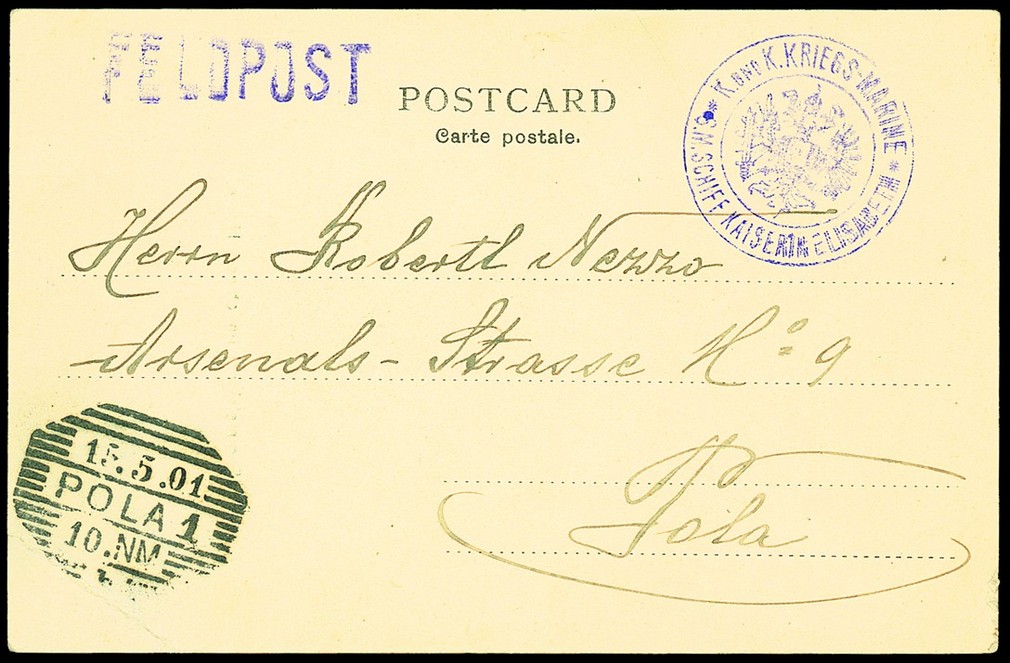 FELDPOST
POSTCARD
Carte postale.
K. UND K. KRIEGS-MARINE * S.M. SCHIFF KAISERIN ELISABETH *
Herrn Robertt Nezzo
Arsenals-Strasse No 9
Pola
15.5.01
POLA 1
10.NM